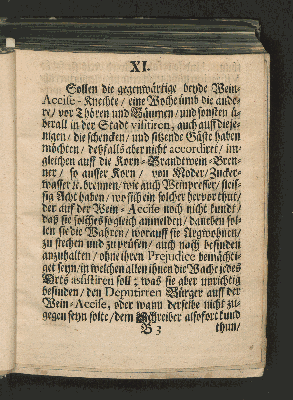 XI.
Sollen die gegenwärtige beyde Wein-
Accise-Knechte / eine Woche ümb die ande-
re / vor Thören und Bäumen / und sonsten ü-
berall in der Stadt visitiren, auch auff dieje-
nigen / die schencken / und sitzende Gäste haben
möchten / deßfalls aber nicht accordirt / im-
gleichen auff die Korn-Brandtwein-Bren-
ner / so ausser Korn / von Moder / Zucker-
wasser ꝛc. brennen / wie auch Weinpresser / fleis-
sig Acht haben / wo sich ein solcher hervor thut /
der auff der Wein-Accise noch nicht kundt /
daß sie solches sogleich anmelden / daneben sol-
len sie die Wahren / worauff sie Argwohnen /
zu suchen und zu prüfen / auch nach befinden
anzuhalten / ohne ihren Prejudice bemächti-
get seyn / in welchen allen ihnen die Wache jedes
Orts assistiren soll; was sie aber unrichtig
befinden / den Deputirten Bürger auff der
Wein-Accise, oder wann derselbe nicht zu-
gegen seyn solte / dem Schreiber alsofort kund
B 3 thun /